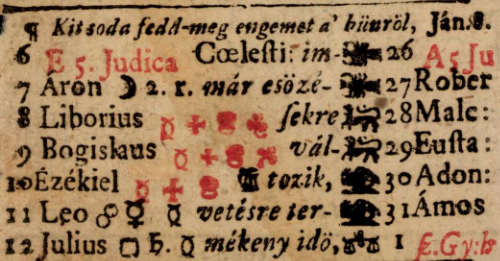 ¶ Kitsoda fedd-meg engemet a' bünröl, Ján. 8.
6 E 5. Judica Cœlesti: im- 26 A 5 Ju
7 Áron ☽ 2. r. már esözé- 27 Rober
8 Liborius ☿ ſekre 28 Malc:
9 Bogislaus ☿ vál- 29 Euſta:
10 Ézékiel ☿ tozik, 30 Adon:
11 Leo ☍ ☿ ☿ vetésre ter- 31 Ámos
12 Julius □ ♄. ☿ mékeny idö, 1 E. Gy: h